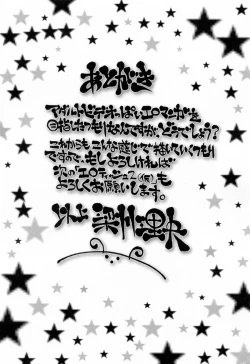 あとがき
アダルトビデオっぽいエロマンガを
目指したつもりなんですが、どうでしょう?
これからもこんな感じで描いていくつもり
ですので、もしよろしければ
次の「エロティッシュ2(仮)」も
よろしくお願いします。